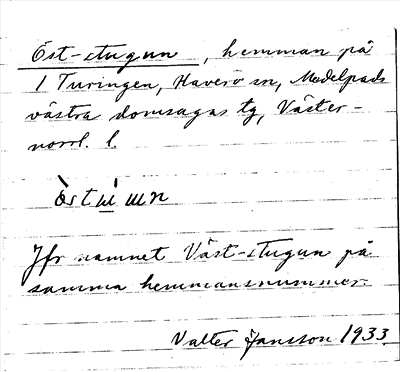 Öst-stugun, hemman på
1 Turingen, Haverö sn, Medelpads
västra domsagas tg, Väster-
norrl. l.
Jfr namnet Väst-stugun på
samma hemmansnummer.
Valter Jansson 1933.